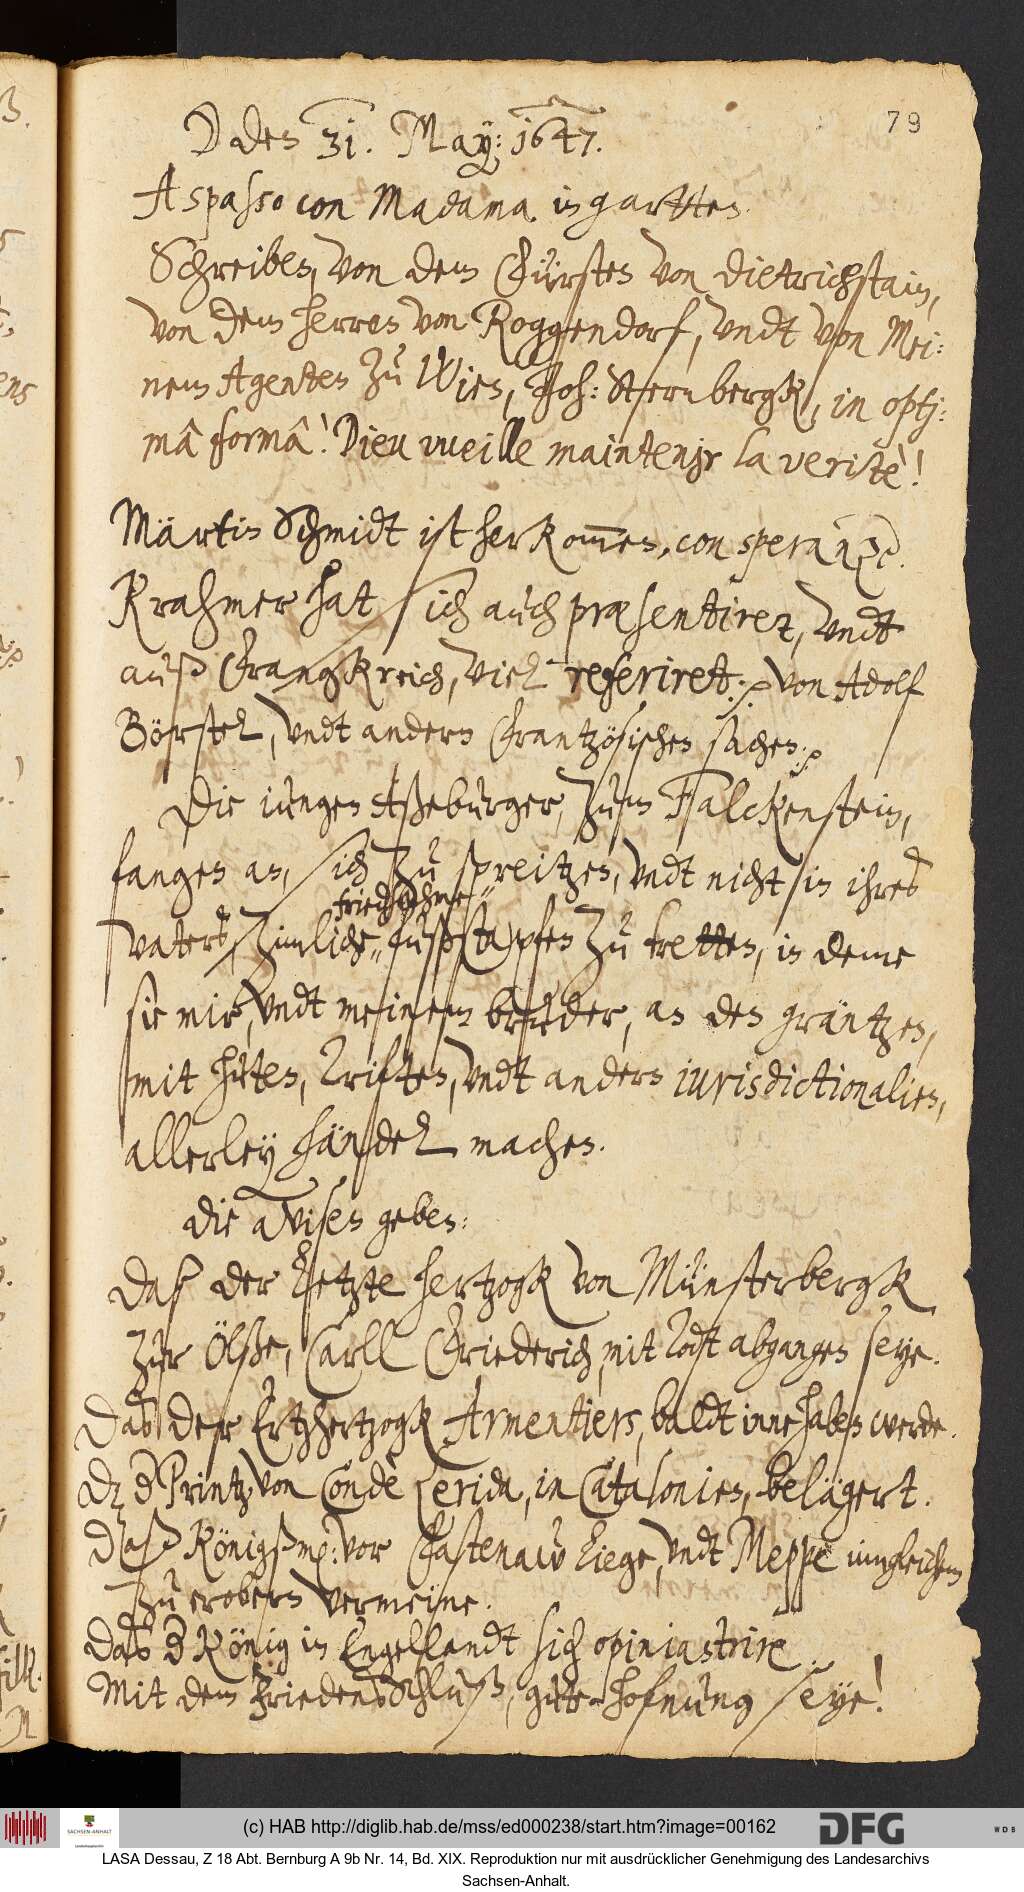 79
den 31. May: 1647.
A spasso con Madama. in gartten.
Schreiben, von dem Fürsten von Dietrichstain,
von dem herren von Roggendorf, vndt von Mei:
nem Agenten zu Wien, Joh: Sternbergk, in optj:
mâ formâ! Dieu vueille maintenjr la veritè!
Märtin Schmidt ist herkom̅en, con speranza.
Krahmer hat sich auch præsentiret, vndt
auß Frangkreich, viel referiret: von Adolf
Börstel, vndt andern Frantzösischen sachen:
Die iungen Aßeburger, zum Falckenstein,
fangen an, sich zu spreitzen, vndt nicht in ihres
friedsahme
vaters, zimliche„ fußstapfen zu tretten, in deme
sie mir, vndt meinem bruder, an den gräntzen,
mit huten, Triften, vndt andern iurisdictionalien,
allerley händel machen.
Die avisen geben:
Daß der letzte hertzogk von Münsterbergk
zur Ölße, Carll Friederich, mit Todt abgangen seye.
Das der Ertzhertzogk Armentiers, baldt inne haben werde.
Dz d Printz von Condè Lerida, in Catalonien, belägert.
Daß Königßm: vor Fastenaw liege, vndt Meppe inngleichem
zu erobern vermeine.
Das d König in Engellandt sich opiniastrire.
Mit dem Friedensschluß, gute hofnung seye!
(c) HAB http://diglib.hab.de/mss/ed000238/start.htm?image=00162
SACHSEN-ANHALT
DFG
WDB
LASA Dessau, Z 18 Abt. Bernburg A 9b Nr. 14, Bd. XIX. Reproduktion nur mit ausdrücklicher Genehmigung des Landesarchivs
Sachsen-Anhalt.